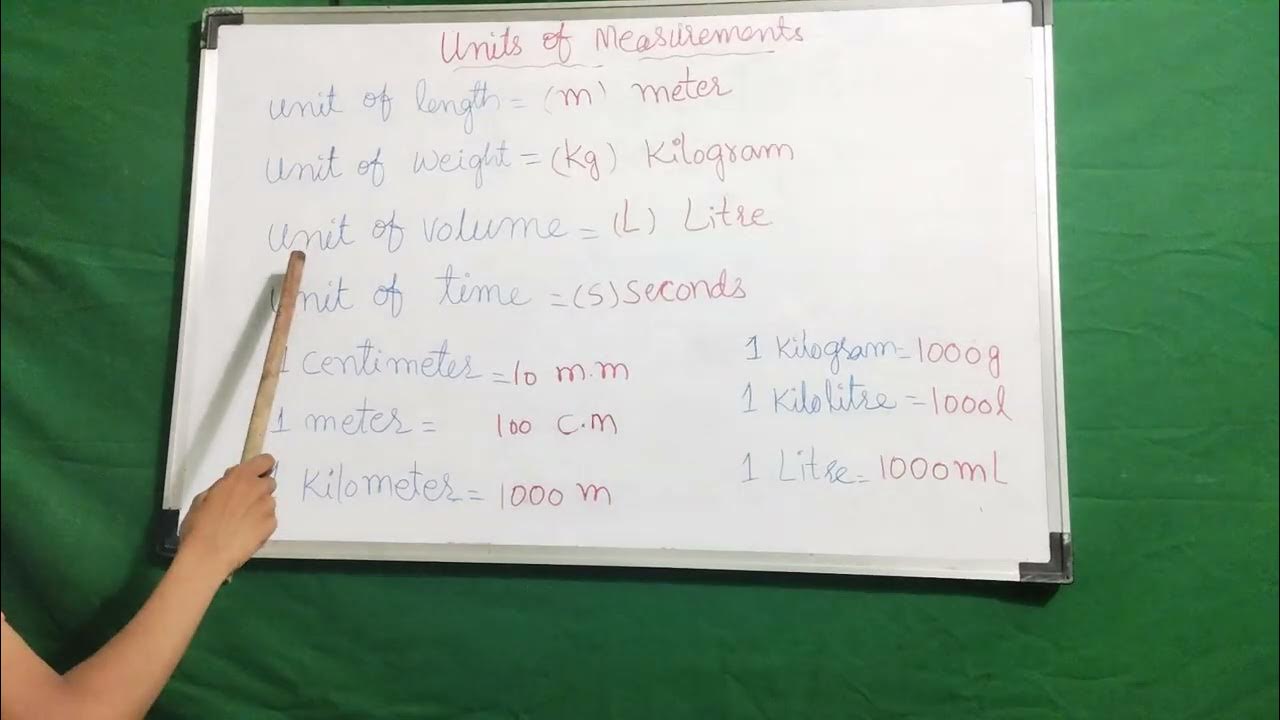 Units of Measurements
Unit of length = (m) meter
Unit of weight = (Kg) Kilogram
Unit of volume = (L) Litre
Unit of time = (S) Seconds
1 Centimeter = 10 m.m
1 meter = 100 C.M
1 Kilometer = 1000 m
1 Kilogram = 1000g
1 Kilolitre = 1000l
1 Litre = 1000mL